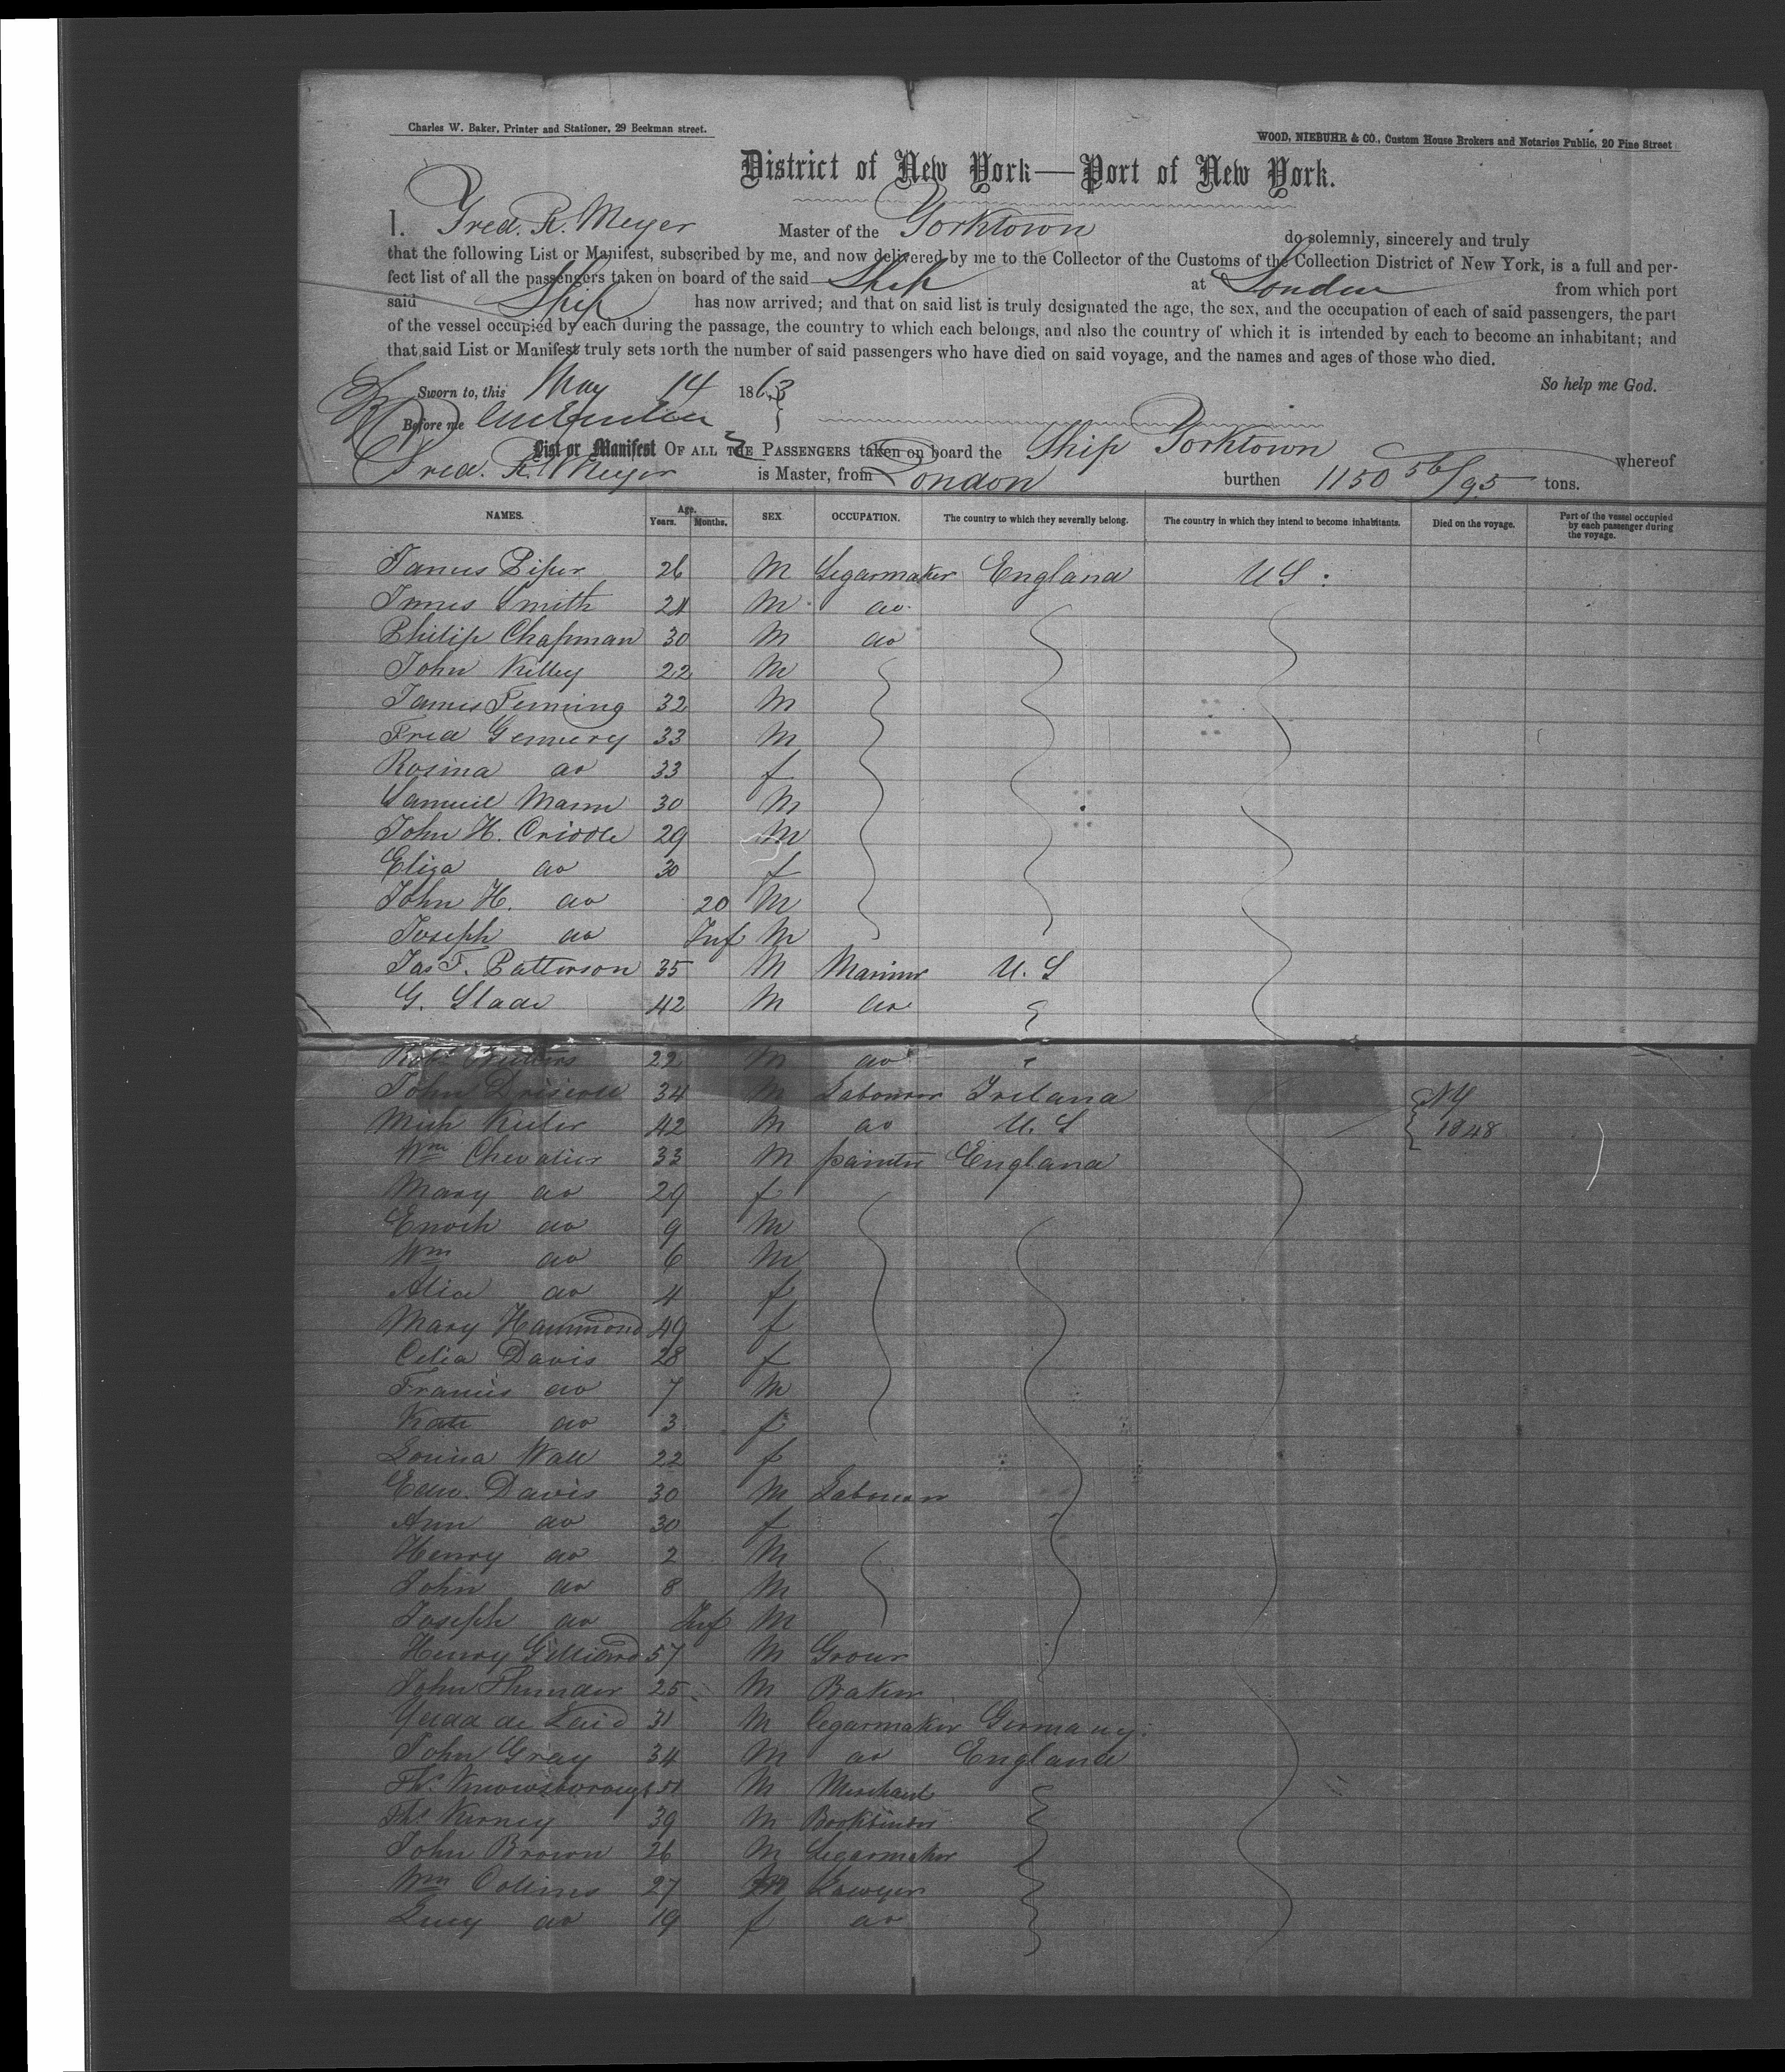 Charles W. Baker, Printer and Stationer, 29 Beekman street.
WOOD, NIEBUHR & CO., Custom House Brokers and Notaries Public, 20 Pine Street
District of New York—Port of New York.
I. Fred. R. Meyer Master of the Yorktown do solemnly, sincerely and truly
that the following List or Manifest, subscribed by me, and now delivered by me to the Collector of the Customs of the Collection District of New York, is a full and per-
fect list of all the passengers taken on board of the said Ship at London from which port
said Ship has now arrived; and that on said list is truly designated the age, the sex, and the occupation of each of said passengers, the part
of the vessel occupied by each during the passage, the country to which each belongs, and also the country of which it is intended by each to become an inhabitant; and
that said List or Manifest truly sets forth the number of said passengers who have died on said voyage, and the names and ages of those who died.
Sworn to, this May 14 1863 So help me God.
Before me
List or Manifest OF ALL THE PASSENGERS taken on board the Ship Yorktown whereof
Fred. R. Meyer is Master, from London burthen 1150 56/95 tons.
NAMES. Age. Years. Months. SEX. OCCUPATION. The country to which they severally belong. The country in which they intend to become inhabitants. Died on the voyage. Part of the vessel occupied by each passenger during the voyage.
James Piper 26 M Segarmaker England U S
James Smith 24 M do
Philip Chapman 30 M do
John Kelley 22 M
James Fenning 32 M
Fred Gennery 33 M
Rosina do 33 f
Samuel Mann 30 M
John H. Criddle 29 M
Eliza do 30 f
John H. do 20 M
Joseph do Inf M
Jas F. Patterson 35 M Mariner U. S
G. Slade 42 M do
Robt 22 M do
John Driscoll 34 M Labourer Ireland NY
Mich Keeler 42 M do U. S 1848
Wm Chevalier 33 M painter England
Mary do 29 f
Enoch do 9 M
Wm do 6 M
Alice do 4 f
Mary Hammond 49 f
Celia Davis 28 f
Francis do 7 M
Kate do 3 f
Louisa Wall 22 f
Edw. Davis 30 M Labourer
Ann do 30 f
Henry do 2 M
John do 8 M
Joseph do Inf M
Henry Gilliard 57 M Grocer
John Thunder 25 M Baker
31 M Cegarmaker Germany
John Gray 34 M do England
Ths Knowsborough 51 M Merchant
Ths Kerney 39 M Bookbinder
John Brown 26 M Segarmaker
Wm Collins 27 M Lawyer
Lucy do 19 f do